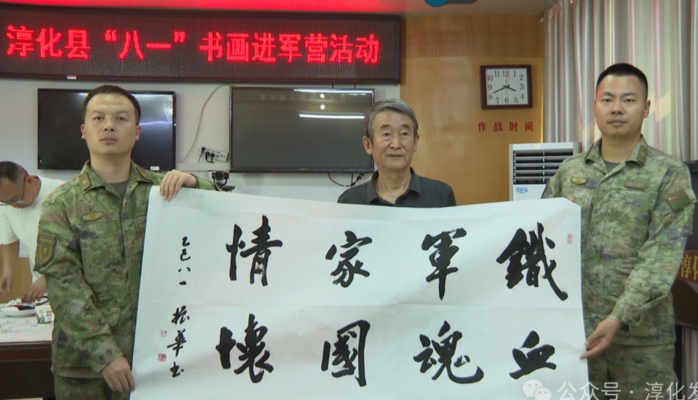 淳化县“八一”书画进军营活动
作战时间
鐵血
軍魂
家國
情懷
乙巳八一
振華书
公众号 · 淳化发